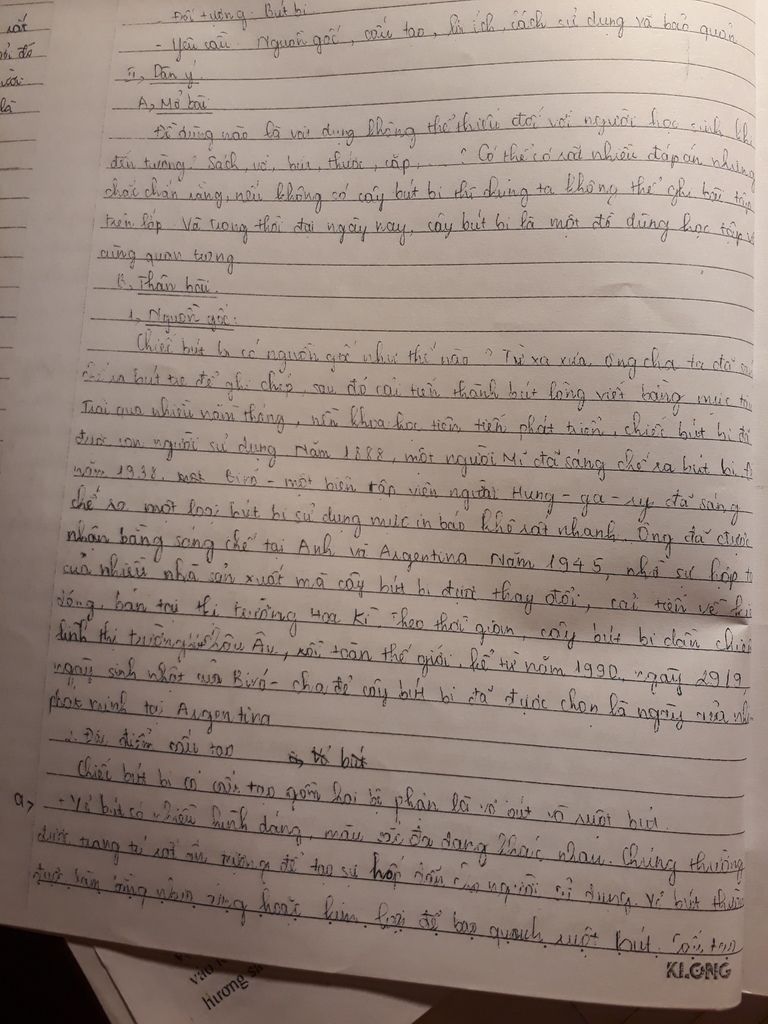 Đối tượng: Bút bi
- Yêu cầu: Nguồn gốc, cấu tạo, lợi ích, cách sử dụng và bảo quản
II, Dàn ý
A, Mở bài
Đồ dùng nào là vật dụng không thể thiếu đối với người học sinh khi
đến trường? Sách, vở, bút, thước, cặp, ...? Có thể có rất nhiều đáp án nhưng
chắc chắn rằng, nếu không có cây bút bi thì chúng ta không thể ghi bài tập
trên lớp. Và trong thời đại ngày nay, cây bút bi là một đồ dùng học tập vô
cùng quan trọng
B, Thân bài.
1, Nguồn gốc:
Chiếc bút bi có nguồn gốc như thế nào? Từ xa xưa, ông cha ta đã
ra bút tre để ghi chép, sau đó cải tiến thành bút lông viết bằng mực tàu
Trải qua nhiều năm tháng, nền khoa học tiên tiến phát triển, chiếc bút bi đã
được con người sử dụng. Năm 1888, một người Mĩ đã sáng chế ra bút bi.
năm 1938, Biró - một biên tập viên người Hung-ga-ry đã sáng
chế ra một loại bút bi sử dụng mực in báo khô rất nhanh. Ông đã được
nhận bằng sáng chế tại Anh và Argentina. Năm 1945, nhờ sự hợp
của nhiều nhà sản xuất mà cây bút bi được thay đổi, cải tiến về
dáng, bán tại thị trường Hoa Kì. Theo thời gian, cây bút bi dần chiếm
lĩnh thị trường Châu Âu, rồi toàn thế giới. Kể từ năm 1990, ngày 29/9,
ngày sinh nhật của Biró - cha đẻ cây bút bi đã được chọn là ngày của nhà
phát minh tại Argentina
Đặc điểm cấu tạo
Chiếc bút bi có cấu tạo gồm hai bộ phận là vỏ bút và ruột bút.
a, - Vỏ bút có nhiều hình dáng, màu sắc đa dạng khác nhau. Chúng thường
được trang trí rất ấn tượng để tạo sự hấp dẫn cho người sử dụng. Vỏ bút thường
được làm bằng nhựa cứng hoặc kim loại để bao quanh ruột bút. Cấu tạo
KLONG
vào
hương